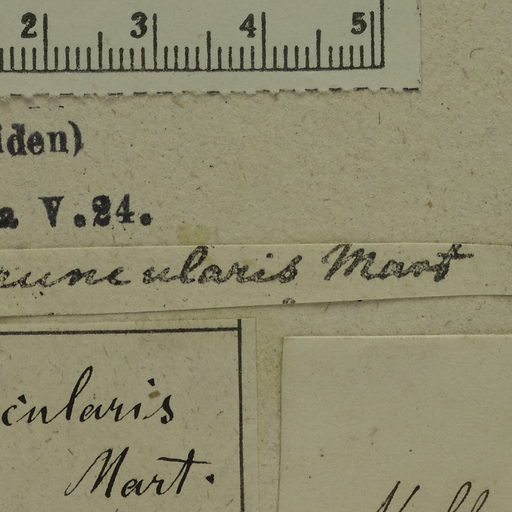 2 3 4 5
iden)
a V.24.
auncularis Mart
cularis
Mart.